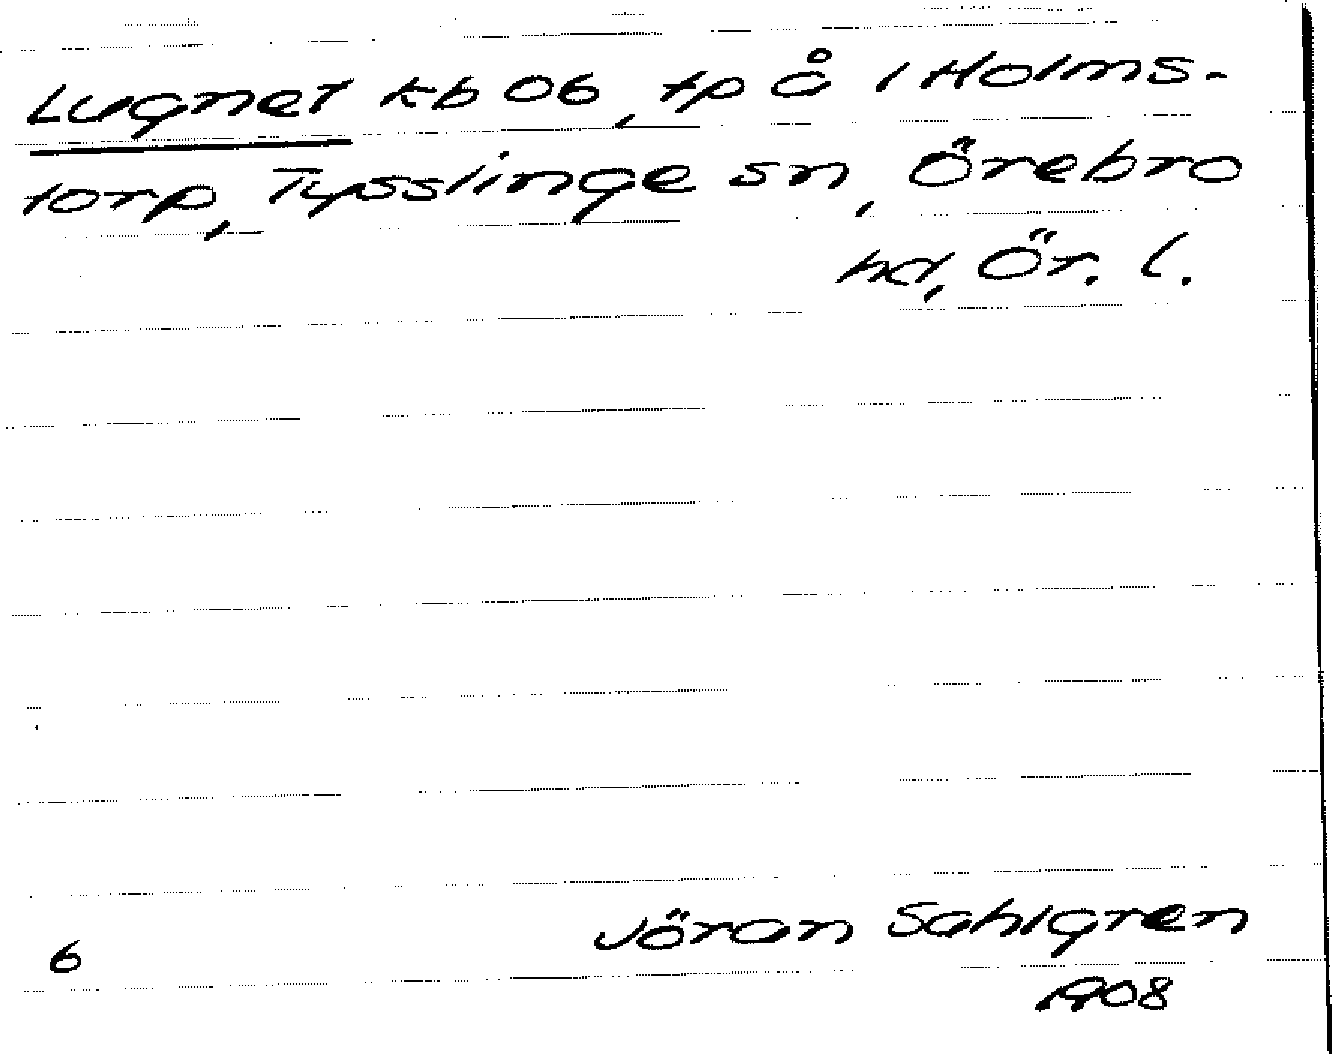 Lugnet kb 06, tp å 1 Holms-
torp, Tysslinge sn, Örebro
hd, Ör. l.
Jöran Sahlgren
6
1908